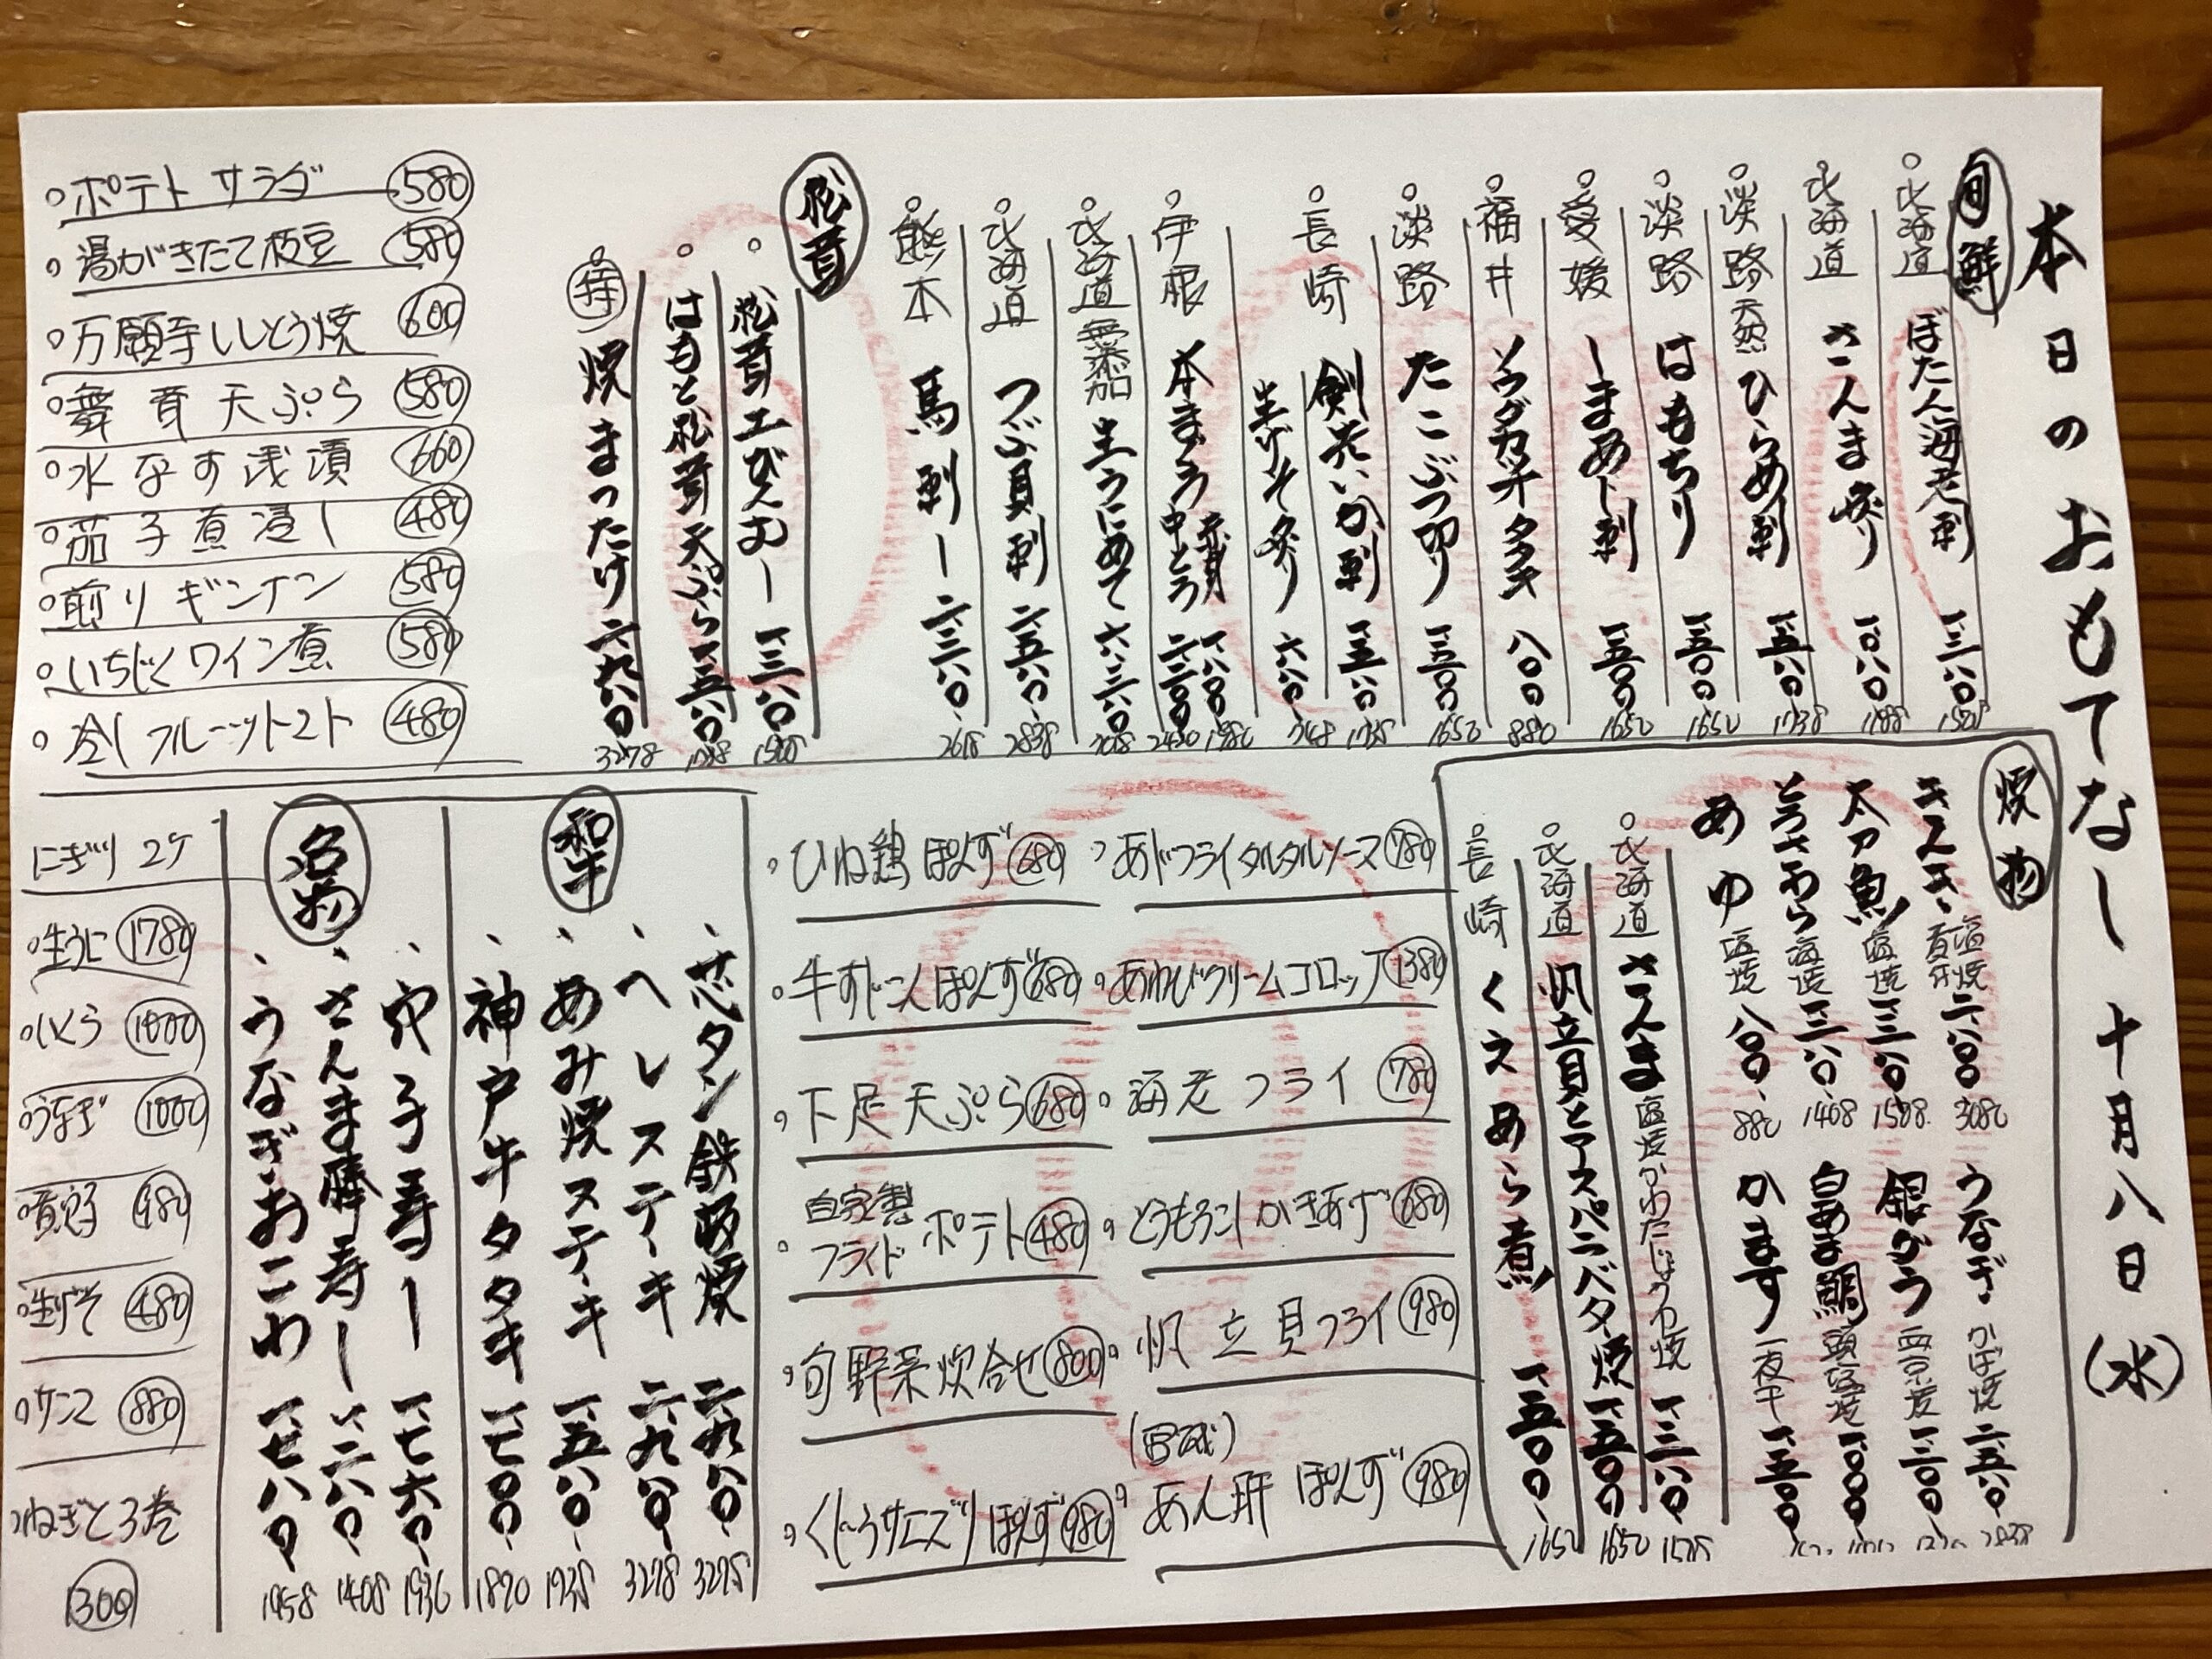 本日のおもてなし 十月八日(水)
旬鮮
北海道 ぼたん海老刺 一三八〇 1518
北海道 さんま炙り 一〇八〇 1188
淡路 天然 ひらめ刺 一五八〇 1738
淡路 はもちり 一五〇〇 1650
愛媛 しまあじ刺 一五〇〇 1650
福井 ソウダガツオタタキ 八〇〇 880
淡路 たこぶつ切り 一五〇〇 1650
長崎 剣先いか刺 一五八〇 1738
生げそ炙り 六八〇 748
伊根 本まぐろ 赤身 一八〇〇 1980
中とろ 二二〇〇 2420
北海道 無添加 生うにあて
北海道 つぶ貝刺 二五八〇 2838
熊本 馬刺し 二三八〇 2618
松茸
松茸土びんむし 一三八〇 1518
はもと松茸天ぷら 一五八〇 1738
焼まつたけ 二九八〇 3278
ポテトサラダ 580
湯がきたて枝豆 580
万願寺ししとう焼 600
舞茸天ぷら 580
水なす浅漬 660
茄子煮浸し 480
煎りギンナン 580
いちじくワイン煮 580
冷しフルーツトマト 480
焼物
塩焼
二八〇〇 3080
太刀魚 塩焼 一三八〇 1518
とろさわら 塩焼 一二八〇 1408
あゆ 塩焼 八〇〇 880
うなぎ かば焼 二五八〇 2838
銀だら 西京焼 一二〇〇
白あま鯛 頭塩焼 一〇〇〇
かます 一夜干 一五〇〇
北海道 さんま 塩焼 かわたじょうゆ焼 一三八〇 1518
北海道 帆立貝とアスパラバター焼 一五〇〇 1650
長崎 くえあら煮 一五〇〇 1650
あじフライタルタルソース 780
あわびクリームコロッケ 1380
海老フライ 780
とうもろこしかきあげ 680
帆立貝フライ 980
あん肝ぽんず 980
ひね鶏ぽんず 680
牛すじこんぽんず 680
下足天ぷら 680
自家製フライドポテト 480
旬野菜炊合せ 800
くじらサエズリぽんず 980
和牛
芯タン鉄板焼 二九八〇 3278
ヘレステーキ 二九八〇 3278
あみ焼ステーキ 一五八〇 1738
神戸牛タタキ 一七〇〇 1870
名物
穴子寿し 一七六〇 1936
さんま棒寿し 一二八〇 1408
うなぎおこわ 一七八〇 1958
にぎり 2ケ
生うに 1780
いくら 1000
うなぎ 1000
生げそ 480
サンマ 880
ねぎとろ巻 1300